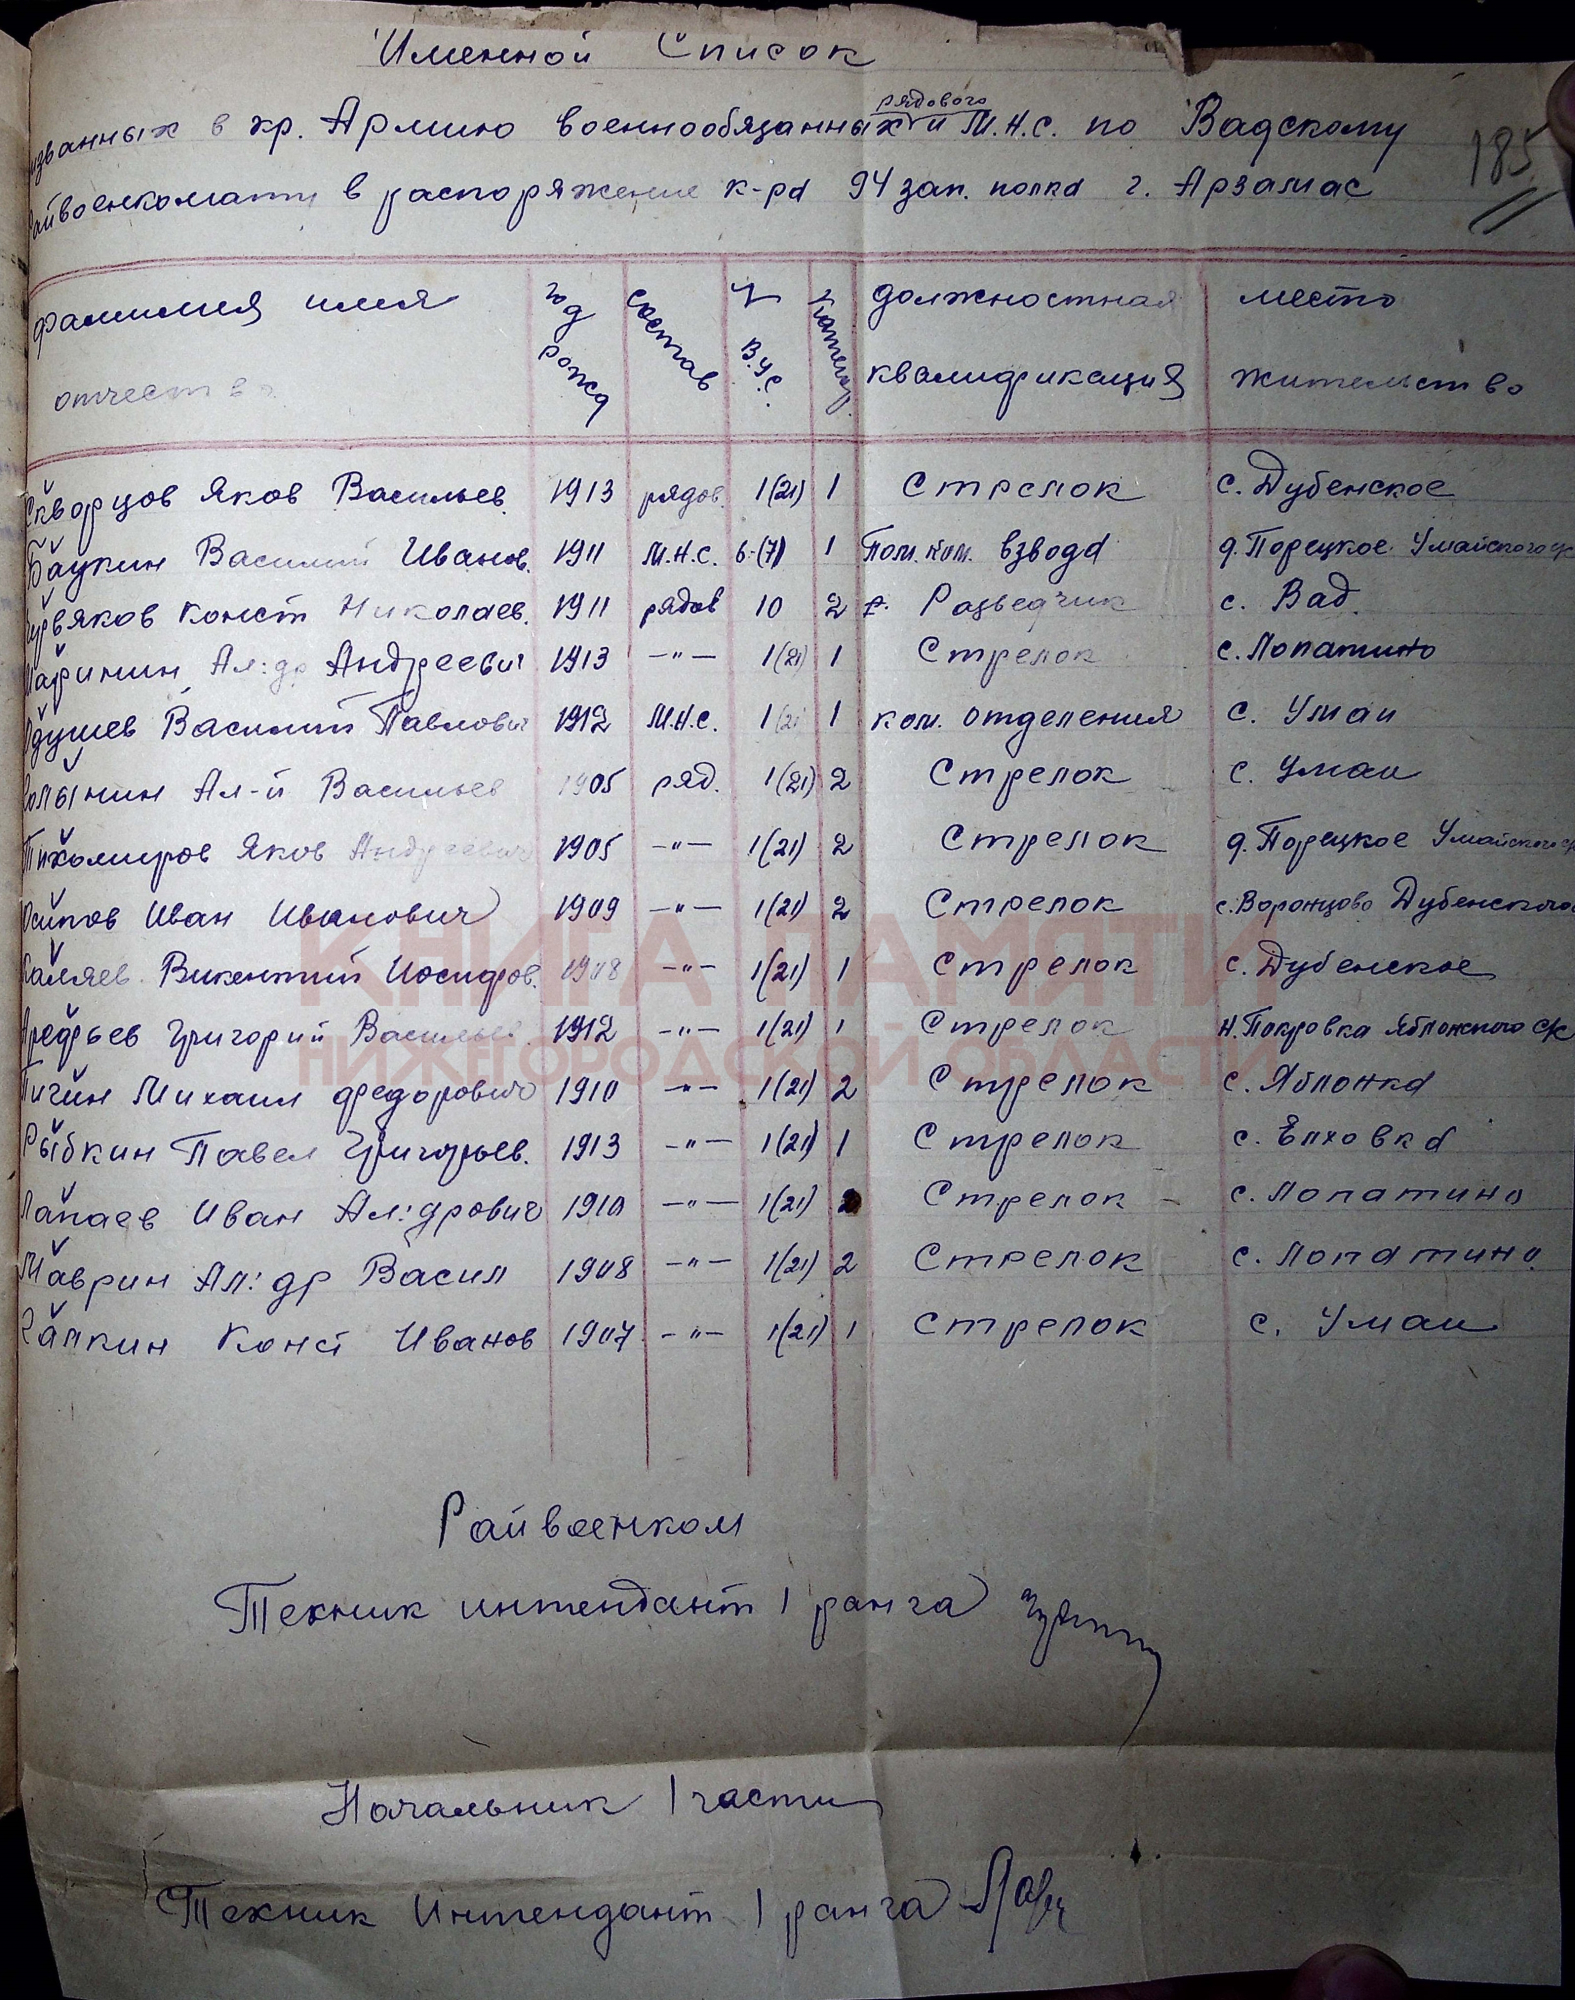 Именной Список
рядового
изванных в кр. Армию военнообязанных и М.Н.С. по Вадскому
185
райвоенкомату в распоряжение к-ра 94 зап. полка г. Арзамас
фамилия имя отчество год рожд состав № В.У.С. категор. должностная квалификация место жительство
Скворцов Яков Васильев. 1913 рядов. 1(21) 1 Стрелок с. Дубенское
Баукин Василий Иванов. 1911 М.Н.С. 6-(7) 1 Пом. ком. взвода д. Порецкое Умайского с/с
Червяков Конст Николаев. 1911 рядов 10 2 Разведчик с. Вад.
Ал:др Андреевич 1913 —"— 1(21) 1 Стрелок с. Лопатино
Одушев Василий Павлович 1912 М.Н.С. 1(21) 1 ком. отделения с. Умаи
Ал-й Васильев 1905 ряд. 1(21) 2 Стрелок с. Умаи
Тихомиров Яков Андреевич 1905 —"— 1(21) 2 Стрелок д. Порецкое Умайского с/с
Осипов Иван Иванович 1909 —"— 1(21) 2 Стрелок с. Воронцово Дубенского
Каляев Викентий Иосифов. 1908 —"— 1(21) 1 Стрелок с. Дубенское
Арефьев Григорий Васильев. 1912 —"— 1(21) 1 Стрелок н. Покровка Яблонского с/с
Пичин Михаил Федорович 1910 —"— 1(21) 2 Стрелок с. Яблонка
Рыбкин Павел Григорьев. 1913 —"— 1(21) 1 Стрелок с. Елховка
Лапаев Иван Ал:дрович 1910 —"— 1(21) 2 Стрелок с. Лопатино
Маврин Ал:др Васил 1908 —"— 1(21) 2 Стрелок с. Лопатино
Галкин Конст Иванов 1907 —"— 1(21) 1 Стрелок с. Умаи
КНИГА ПАМЯТИ
НИЖЕГОРОДСКОЙ ОБЛАСТИ
Райвоенком
Техник интендант 1 ранга
Начальник 1 части
Техник Интендант 1 ранга